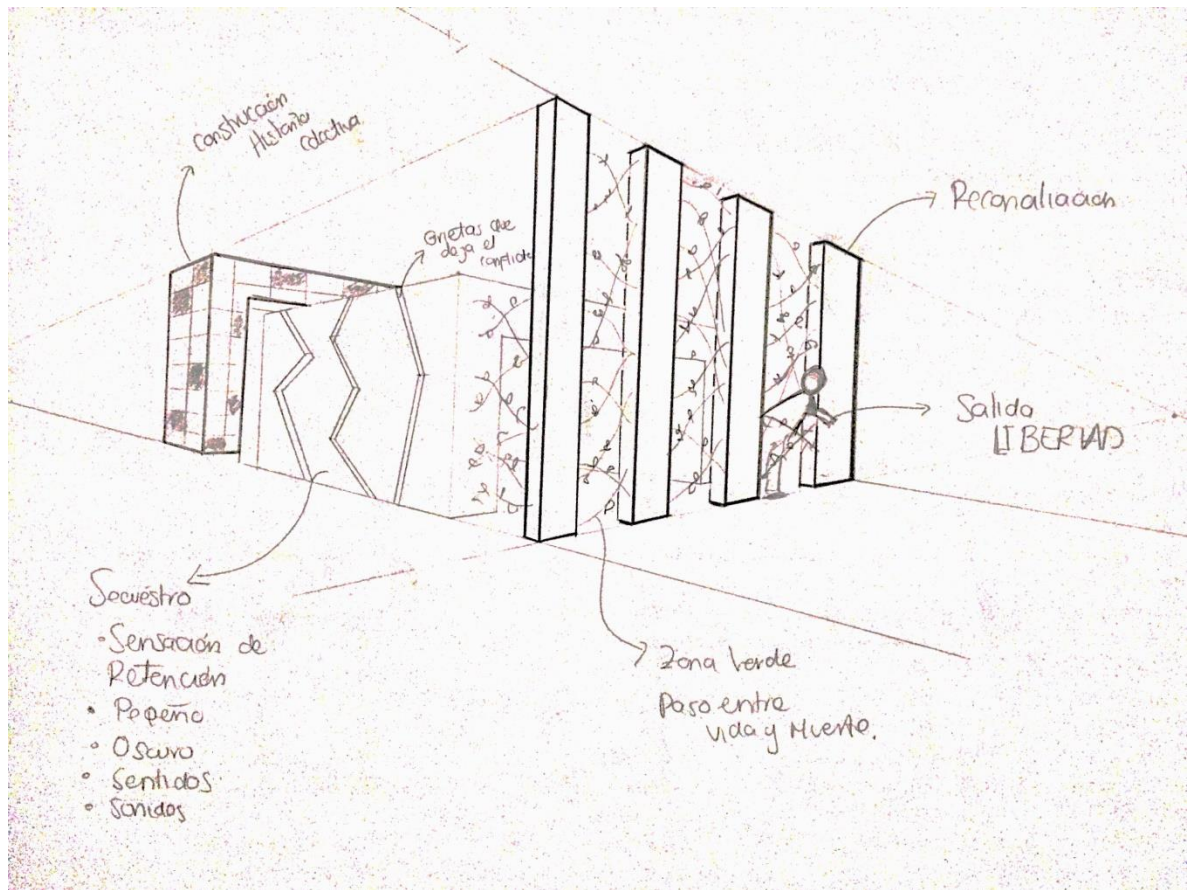 construcción
Historia
colectiva
Grietas que
deja el
conflicto
Reconciliación
Salida
LIBERTAD
Secuéstro
• Sensación de
Retención
• Pequeño
• Oscuro
• Sentidos
• Sonidos
Zona Verde
Paso entre
vida y Muerte.